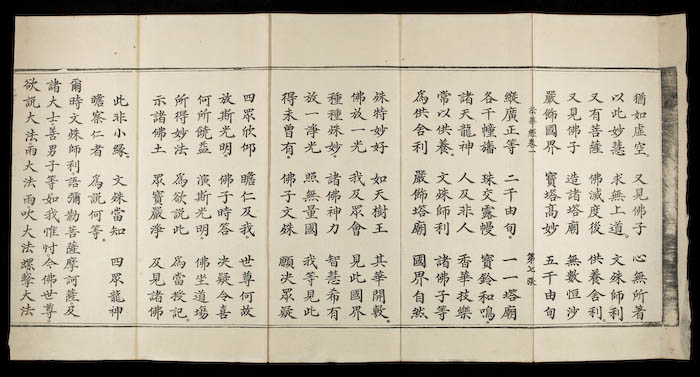 猶如虛空。 又見佛子 心無所著
以此妙慧 求無上道。 文殊師利
又有菩薩 佛滅度後 供養舍利。
又見佛子 造諸塔廟 無數恒沙
嚴飾國界 寶塔高妙 五千由旬
法華經卷一 第七張
縱廣正等 二千由旬。 一一塔廟
各千幢旛 珠交露幔 寶鈴和鳴。
諸天龍神 人及非人 香華技樂
常以供養。 文殊師利 諸佛子等
為供舍利 嚴飾塔廟 國界自然
殊特妙好 如天樹王 其華開敷。
佛放一光 我及眾會 見此國界
種種殊妙。 諸佛神力 智慧希有
放一淨光 照無量國 我等見此
得未曾有。 佛子文殊 願決眾疑
四眾欣仰 瞻仁及我。 世尊何故
放斯光明。 佛子時答 決疑令喜
何所饒益 演斯光明。 佛坐道場
所得妙法 為欲說此 為當授記。
示諸佛土 眾寶嚴淨 及見諸佛
此非小緣。 文殊當知 四眾龍神
瞻察仁者 為說何等。
爾時文殊師利語彌勒菩薩摩訶薩及
諸大士善男子等如我惟忖今佛世尊
欲說大法雨大法雨吹大法螺擊大法